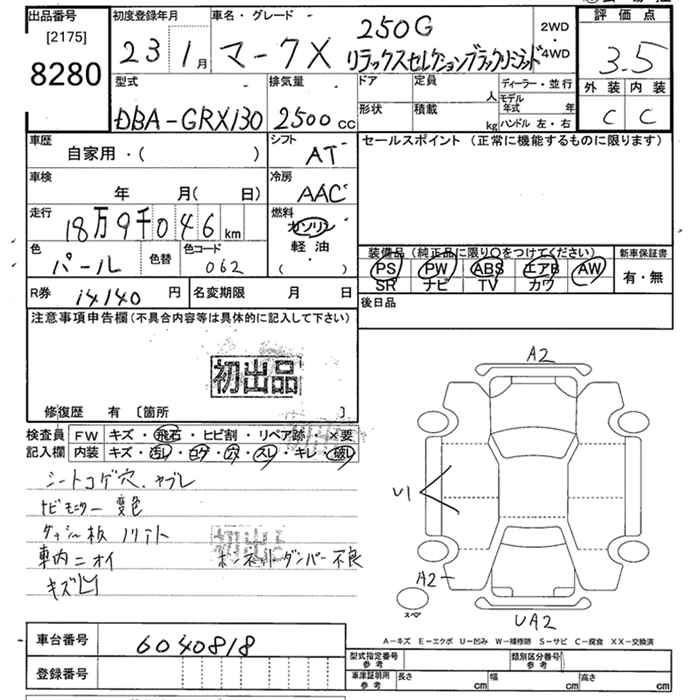 出品番号 初度登録年月 車名・グレード 250G 2WD・4WD 評価点
[2175] 23 1月 マークX リラックスセレクションブラックリミテッド 3.5
8280
型式 排気量 ドア 定員 人 ディーラー・並行 外装 内装
DBA-GRX130 2500cc 形状 積載 kg モデル年式 年 ハンドル 左・右 C C
車歴 シフト セールスポイント (正常に機能するものに限ります)
自家用・( ) AT
車検 冷房
年 月( 日) AAC
走行 燃料
18万9千046km ガソリン
軽油・( )
色 色替 色コード 装備品(純正品に限り○をつけてください) 新車保証書
パール 062 PS PW ABS エアB AW 有・無
SR ナビ TV カワ
R券 14140円 名変期限 月 日 後日品
注意事項申告欄(不具合内容等は具体的に記入して下さい)
初出品
修復歴 有 〔箇所 〕
検査員 FW キズ・飛石・ヒビ割・リペア跡・X要
記入欄 内装 キズ・汚レ・コゲ・穴・スレ・キレ・破レ
シートコゲ穴、ヤブレ
ナビモニター変色
ダッシュ板 ノリアト
初出品
車内ニオイ ボンネットダンパー不良
キズ凹
A2
U1
A2
スペア
UA2
A-キズ E-エクボ U-凹み W-補修跡 S-サビ C-腐食 XX-交換済
車台番号 6040818
型式指定番号 参考 類別区分番号 参考
登録番号 車庫証明用 参考 長さ cm 幅 cm 高さ cm